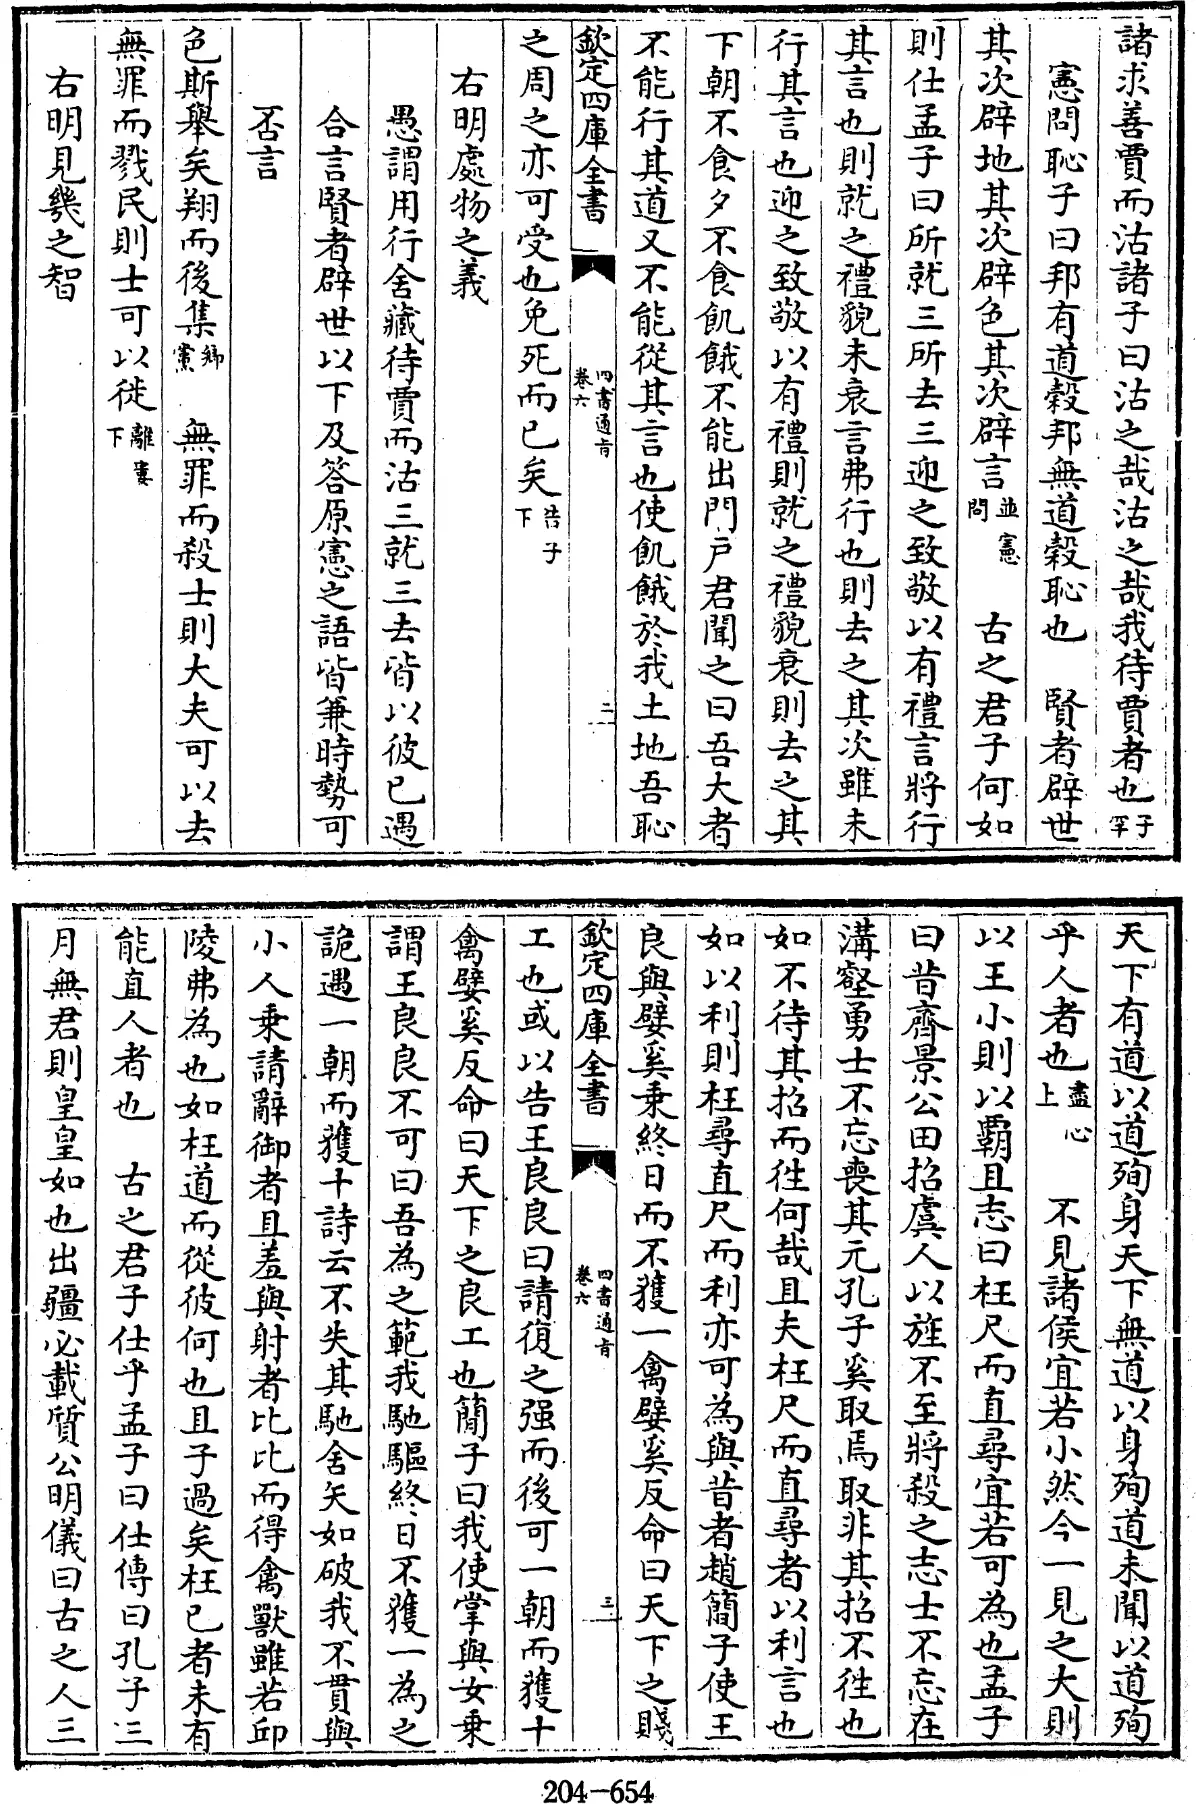 諸求善賈而沽諸子曰沽之哉沽之哉我待賈者也子罕
憲問恥子曰邦有道穀邦無道穀恥也　賢者辟世
其次辟地其次辟色其次辟言並憲問　古之君子何如
則仕孟子曰所就三所去三迎之致敬以有禮言將行
其言也則就之禮貌未衰言弗行也則去之其次雖未
行其言也迎之致敬以有禮則就之禮貌衰則去之其
下朝不食夕不食飢餓不能出門戶君聞之曰吾大者
不能行其道又不能從其言也使飢餓於我土地吾恥
欽定四庫全書　四書通旨卷六　二
之周之亦可受也免死而已矣告子下
右明處物之義
愚謂用行舍藏待賈而沽三就三去皆以彼已遇
合言賢者辟世以下及答原憲之語皆兼時勢可
否言
色斯舉矣翔而後集鄉黨　無罪而殺士則大夫可以去
無罪而戮民則士可以徙離婁下
右明見幾之智
天下有道以道殉身天下無道以身殉道未聞以道殉
乎人者也盡心上　不見諸侯宜若小然今一見之大則
以王小則以霸且志曰枉尺而直尋宜若可為也孟子
曰昔齊景公田招虞人以旌不至將殺之志士不忘在
溝壑勇士不忘喪其元孔子奚取焉取非其招不往也
如不待其招而往何哉且夫枉尺而直尋者以利言也
如以利則枉尋直尺而利亦可為與昔者趙簡子使王
良與嬖奚乘終日而不獲一禽嬖奚反命曰天下之賤
欽定四庫全書　四書通旨卷六　三
工也或以告王良良曰請復之强而後可一朝而獲十
禽嬖奚反命曰天下之良工也簡子曰我使掌與女乘
謂王良良不可曰吾為之範我馳驅終日不獲一為之
詭遇一朝而獲十詩云不失其馳舍矢如破我不貫與
小人乘請辭御者且羞與射者比比而得禽獸雖若邱
陵弗為也如枉道而從彼何也且子過矣枉已者未有
能直人者也　古之君子仕乎孟子曰仕傳曰孔子三
月無君則皇皇如也出疆必載質公明儀曰古之人三
204-654